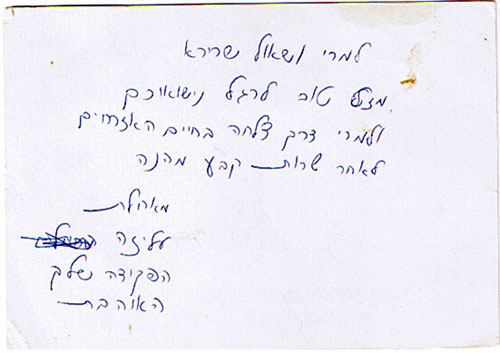 למרי ושאול שרירא
מזל טוב לרגל נישואיכם
ולמרי דרך צלחה בחיים האזרחיים
לאחר שרות קבע מהנה
מאחלת
עליזה
הפקידה שלך
האוהבת